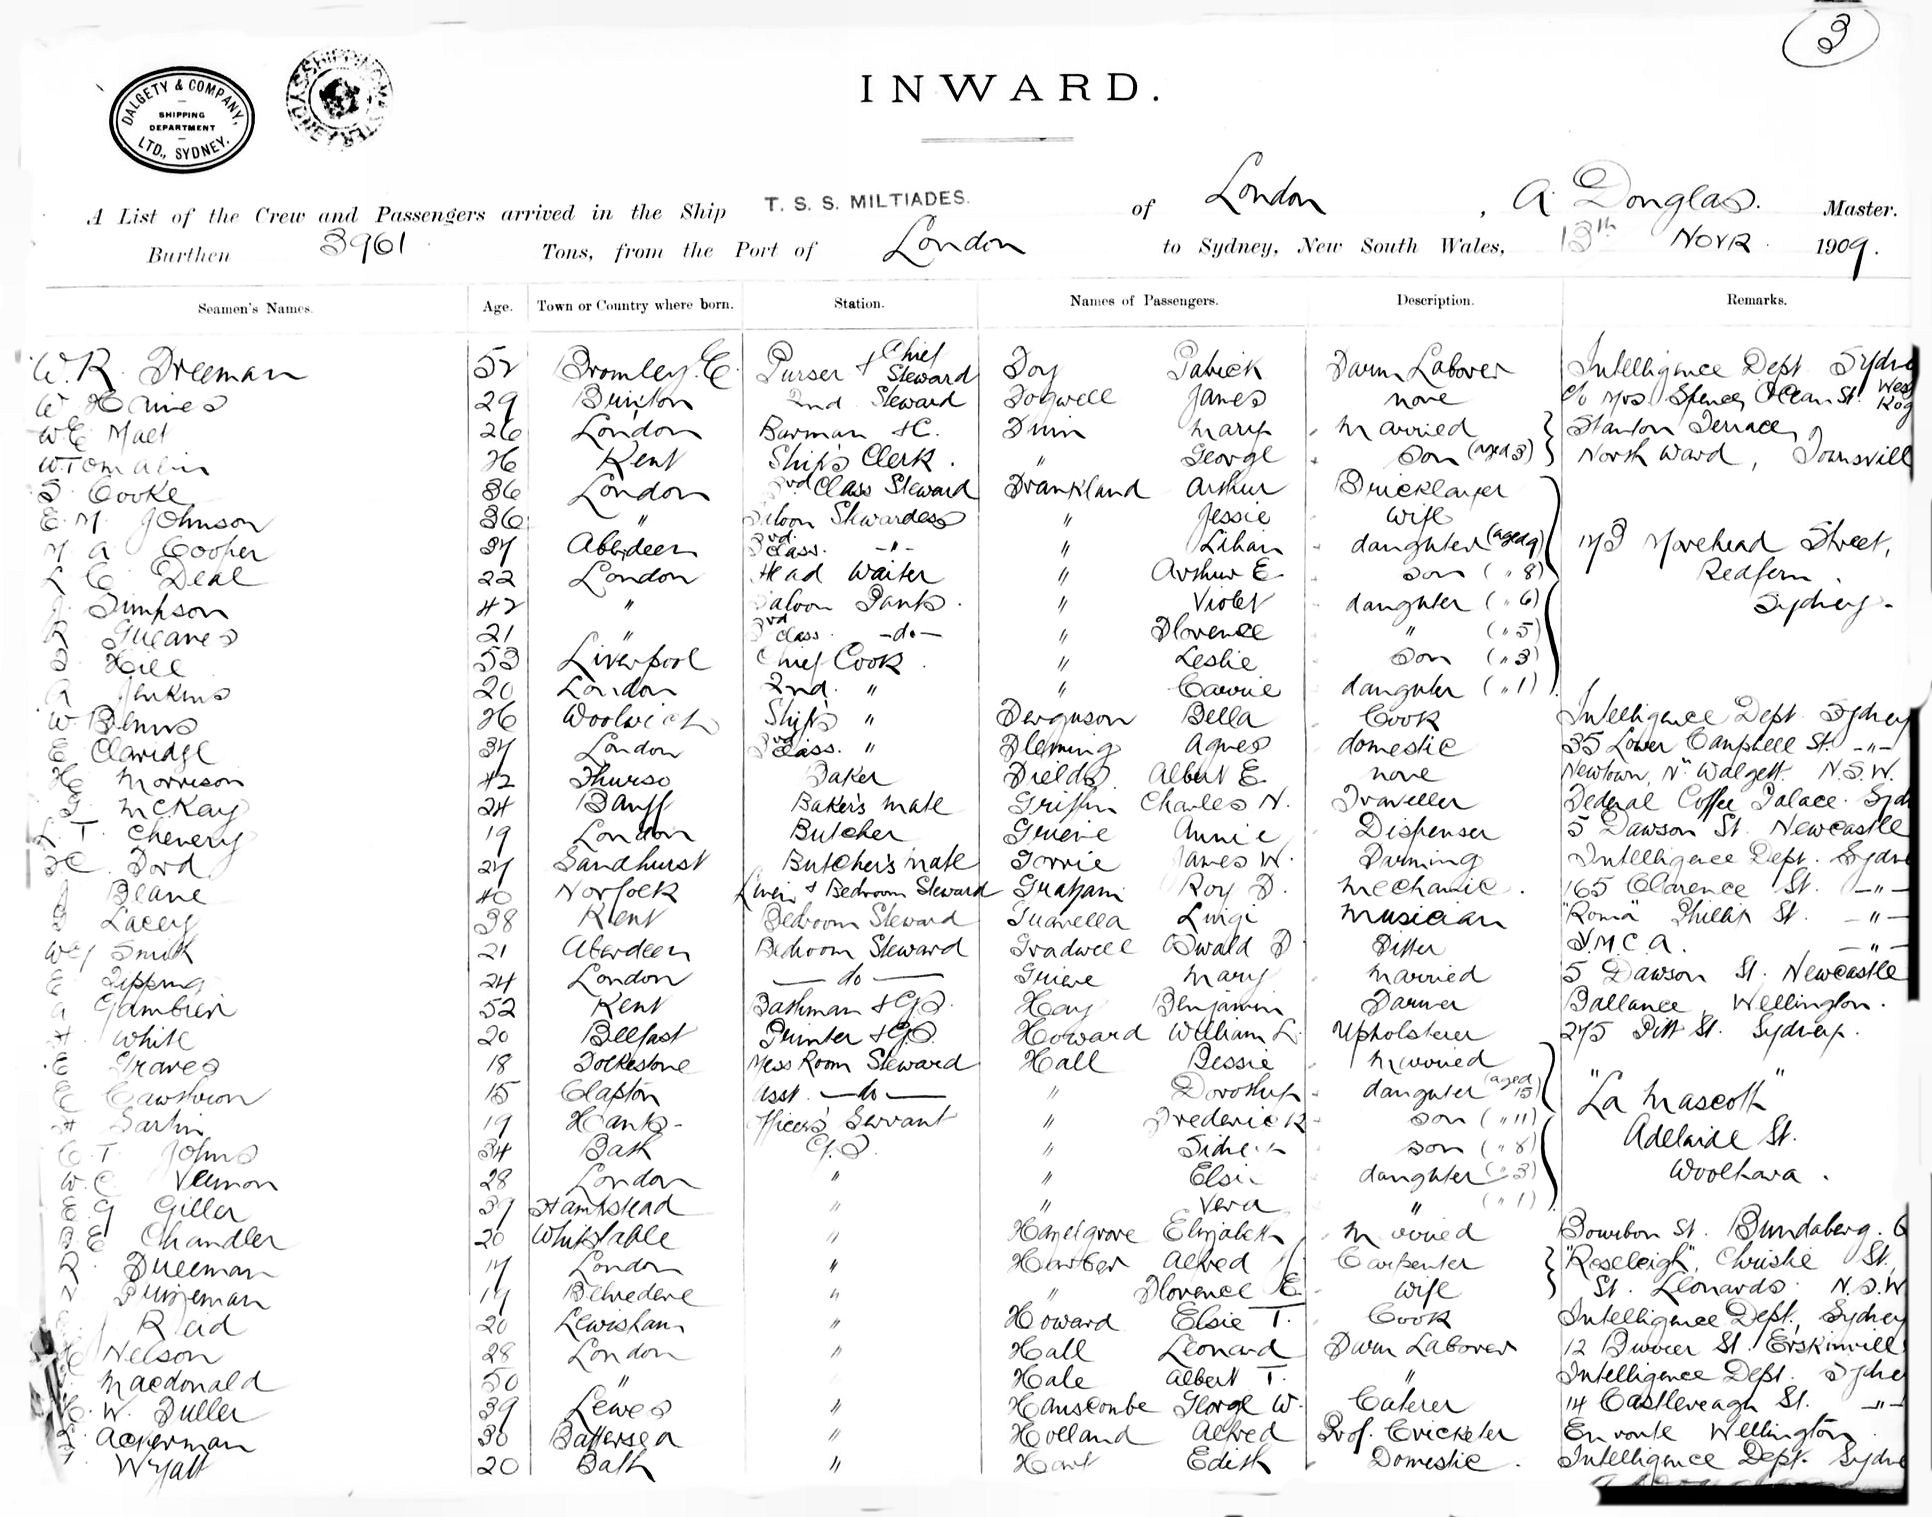 3
DALGETY & COMPANY,
SHIPPING
DEPARTMENT
LTD., SYDNEY.
INWARD.
A List of the Crew and Passengers arrived in the Ship T. S. S. MILTIADES. of London, A Douglas. Master.
Burthen 3961 Tons, from the Port of London to Sydney, New South Wales, 13th Novr. 1909.
Seamen's Names. Age. Town or Country where born. Station. Names of Passengers. Description. Remarks.
W. R. Freeman 52 Bromley. E. Purser & Chief Steward Foy Patrick Farm Laborer Intelligence Dept Sydne
W Haines 29 Buxton 2nd Steward Fogwell James none c/o Mrs Spence, Ocean St. West Kog
26 London Barman & C. Finn Mary Married Stanton Terrace,
W Tomalin 26 Kent Ship's Clerk. " George son (aged 3) North Ward, Townsvill
Cooke 36 London 3rd Class Steward Frankland Arthur Bricklayer
E. M. Johnson 36 " Saloon Stewardess " Jessie wife
M A Cooper 37 Aberdeen 3rd class. -"- " Lilian daughter (aged 9) 173 Morehead Street,
L E Deal 22 London Head Waiter " Arthur E. son ( " 8) Redfern.
J. Simpson 42 " Saloon Pants. " Violet daughter ( " 6) Sydney.
R Greaves 21 " 3rd class. -do- " Florence " ( " 5)
Hill 53 Liverpool Chief Cook. " Leslie son ( " 3)
A Jenkins 20 London 2nd. " " Carrie daughter ( " 1)
W Binns 26 Woolwich Ship's " Ferguson Bella Cook Intelligence Dept Sydney
E Claridge 37 London 3rd class. " Fleming Agnes domestic 35 Lower Campbell St. -"-
H Morrison 42 Thurso Baker Fields Albert E. none Newtown, Nr Walgett. N.S.W.
G McKay 24 Banff Baker's mate Griffin Charles N. Traveller Federal Coffee Palace. Syd
L. T. Chenery 19 London Butcher Grieve Annie Dispenser 5 Dawson St. Newcastle
Ford 27 Sandhurst Butcher's mate Gorrie James W. Farming Intelligence Dept. Sydne
J Beane 40 Norfolk Linen & Bedroom Steward Graham Roy D. Mechanic. 165 Clarence St. -"-
Lacey 38 Kent Bedroom Steward Guarella Luigi Musician "Roma" Phillip St. -"-
W G Smith 21 Aberdeen Bedroom Steward Gradwell Oswald D Fitter Y.M.C.A. -"-
E. Tipping 24 London — do — Grieve Mary Married 5 Dawson St. Newcastle
A Gambrier 52 Kent Bathman & G.S. Hay Benjamin Farmer Ballance, Wellington.
H White 20 Belfast Printer & G.S. Howard William L. Upholsterer 275 Pitt St. Sydney.
E Graves 18 Folkestone Mess Room Steward Hall Bessie Married
E Cawthron 15 Clapton Asst. — do — " Dorothy daughter (aged 15) "La Mascotte"
H Sartin 19 Hants- Officers' Servant " Frederick son ( " 11) Adelaide St.
C. T. Johns 34 Bath G.S. " Sidney son ( " 8) Woolhara.
W. C. Vernon 28 London " " Elsie daughter ( " 3)
E. G Giller 39 Hampstead " " Vera " ( " 1)
E Chandler 20 Whitstable " Hazelgrove Elizabeth Married Bourbon St. Bundaberg. Q
R. Freeman 17 London " Harber Alfred Carpenter "Roseleigh", Christie St,
17 Belvedere " " Florence E. wife St. Leonards N.S.W
Reid 20 Lewisham " Howard Elsie T. Cook Intelligence Dept, Sydney
Nelson 28 London " Hall Leonard Farm Laborer 12 St. Erskinvill
Macdonald 50 " " Hale Albert T. " Intelligence Dept. Sydne
W. Fuller 39 Lewes " Hanscombe George W. Caterer 14 Castlereagh St. -"-
Ackerman 30 Battersea " Holland Alfred Prof. Cricketer En route Wellington
Wyatt 20 Bath " Hart Edith Domestic. Intelligence Dept. Sydne